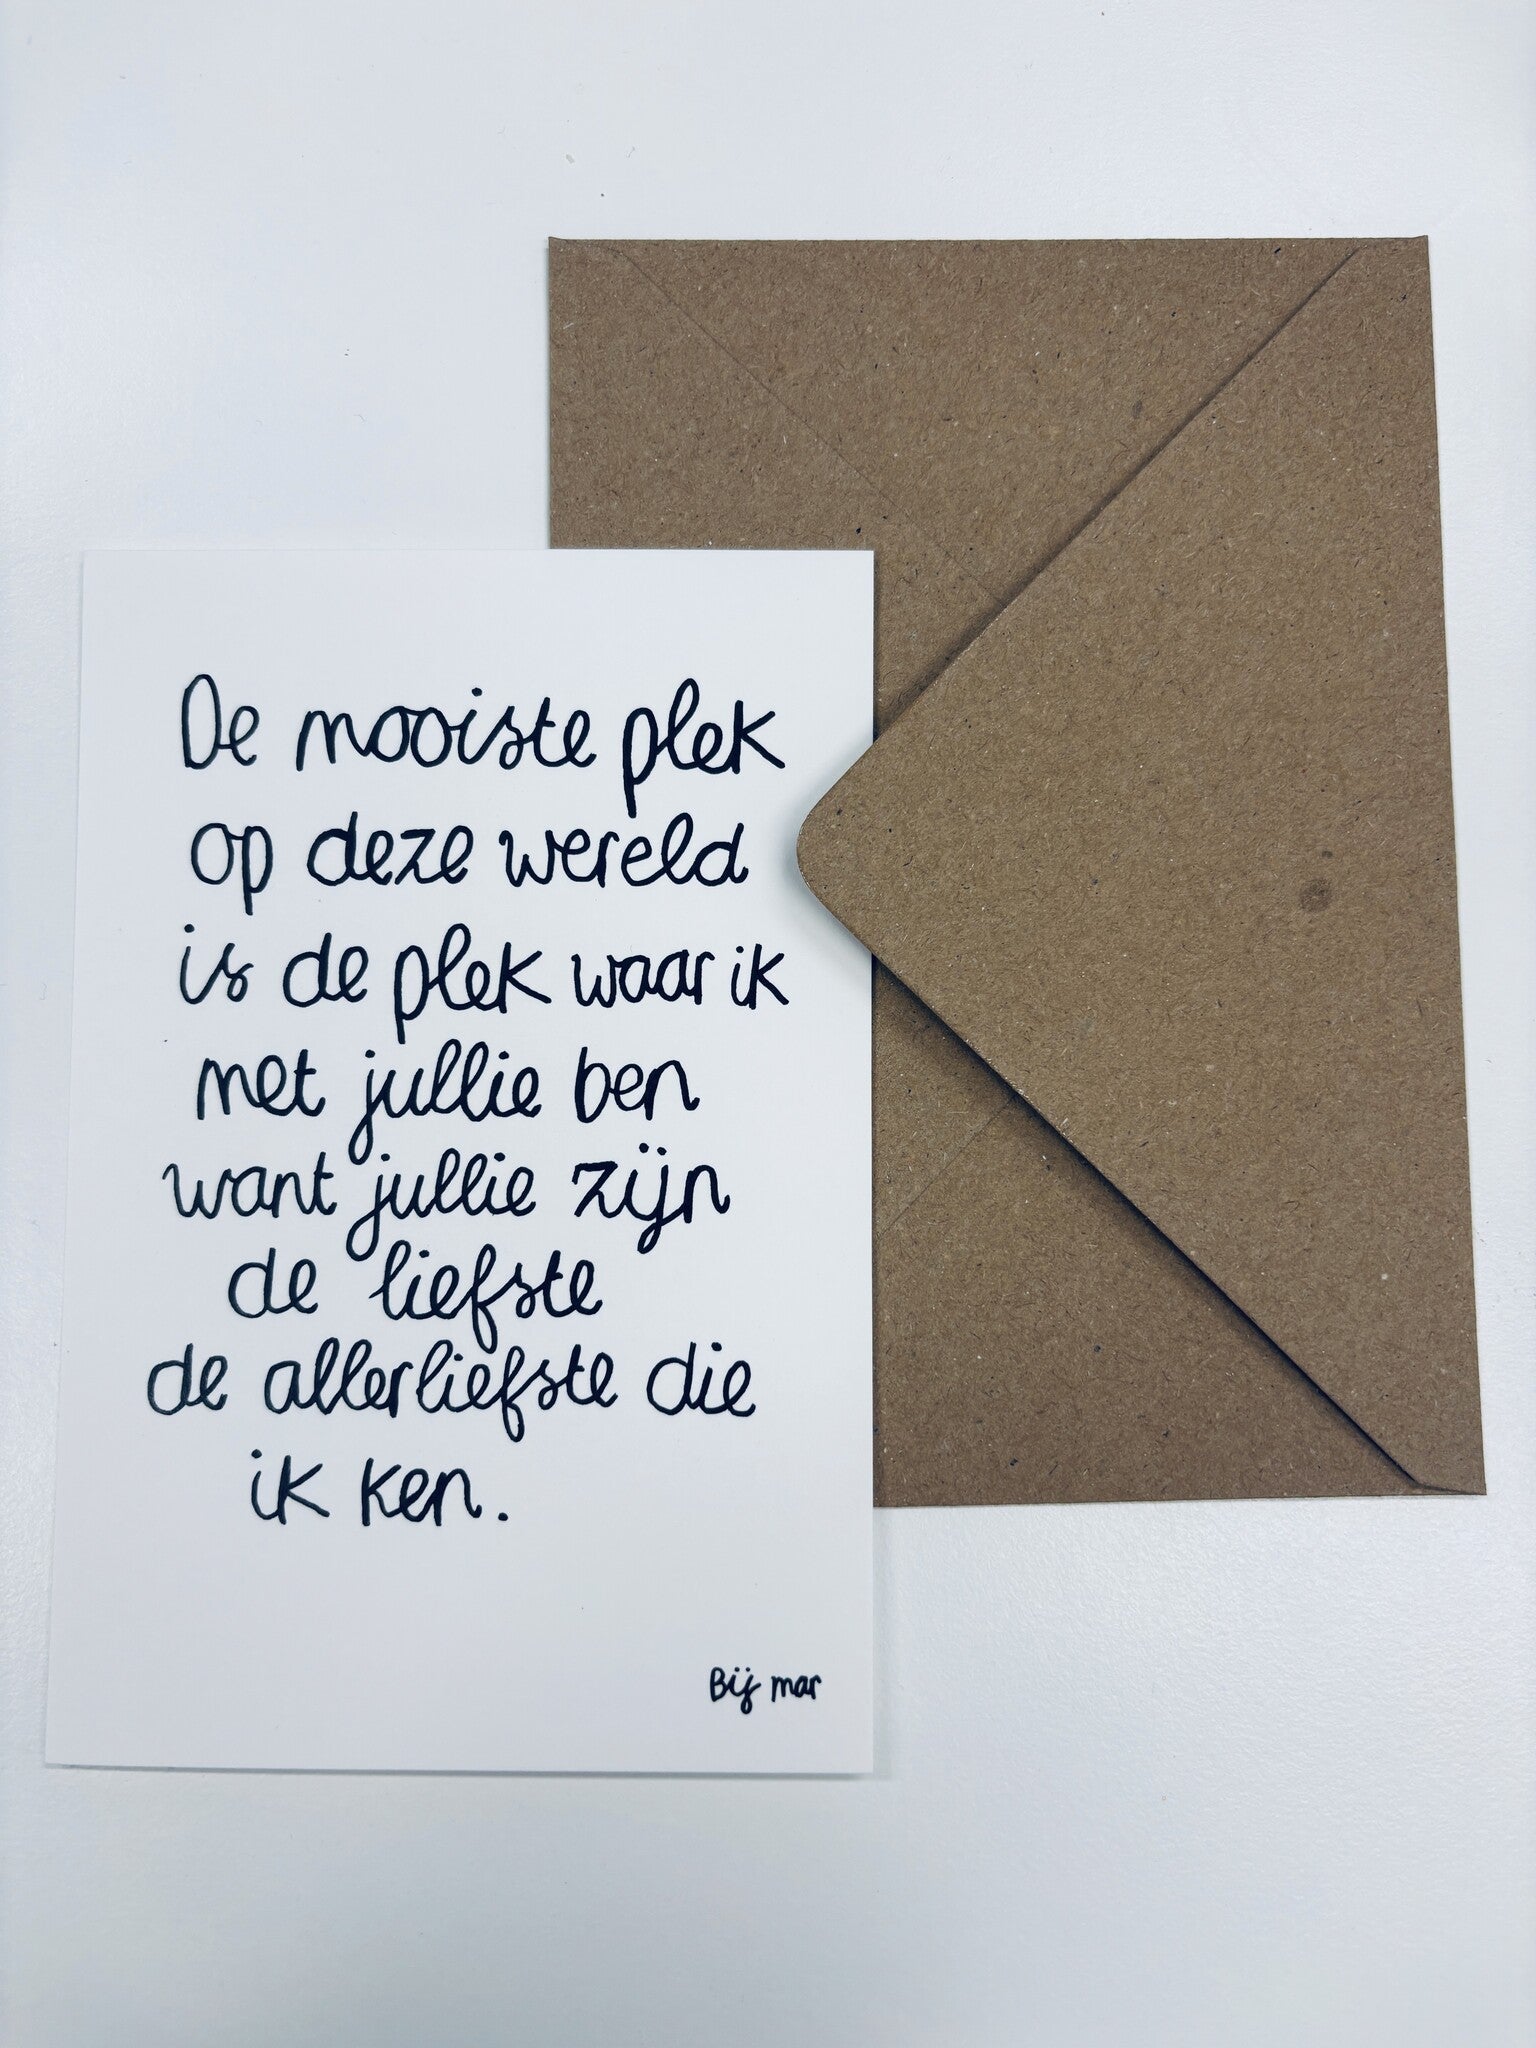 De mooiste plek
op deze wereld
is de plek waar ik
met jullie ben
want jullie zijn
de liefste
de allerliefste die
ik ken.
Bij mar